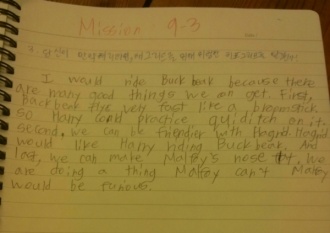 Mission 9-3
I would ride Buckbeak because there
are many good things we can get. First,
Buckbeak flys very fast like a broomstick.
So Harry could practice quiditch on it.
Second, we can be friendlier with Hagrid. Hagrid
would like Harry riding Buckbeak. And
last, we can make Malfoy's nose flat. We
are doing a thing Malfoy can't. Malfoy
would be furious.